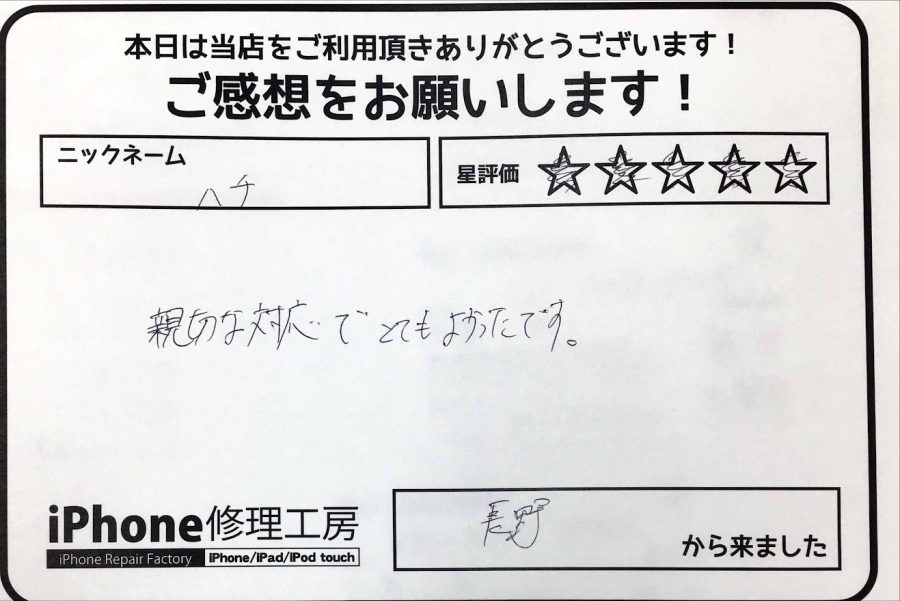 本日は当店をご利用頂きありがとうございます！
ご感想をお願いします！
ニックネーム
ハチ
星評価
親切な対応でとてもよかったです。
iPhone修理工房
iPhone Repair Factory iPhone/iPad/iPod touch
長野
から来ました